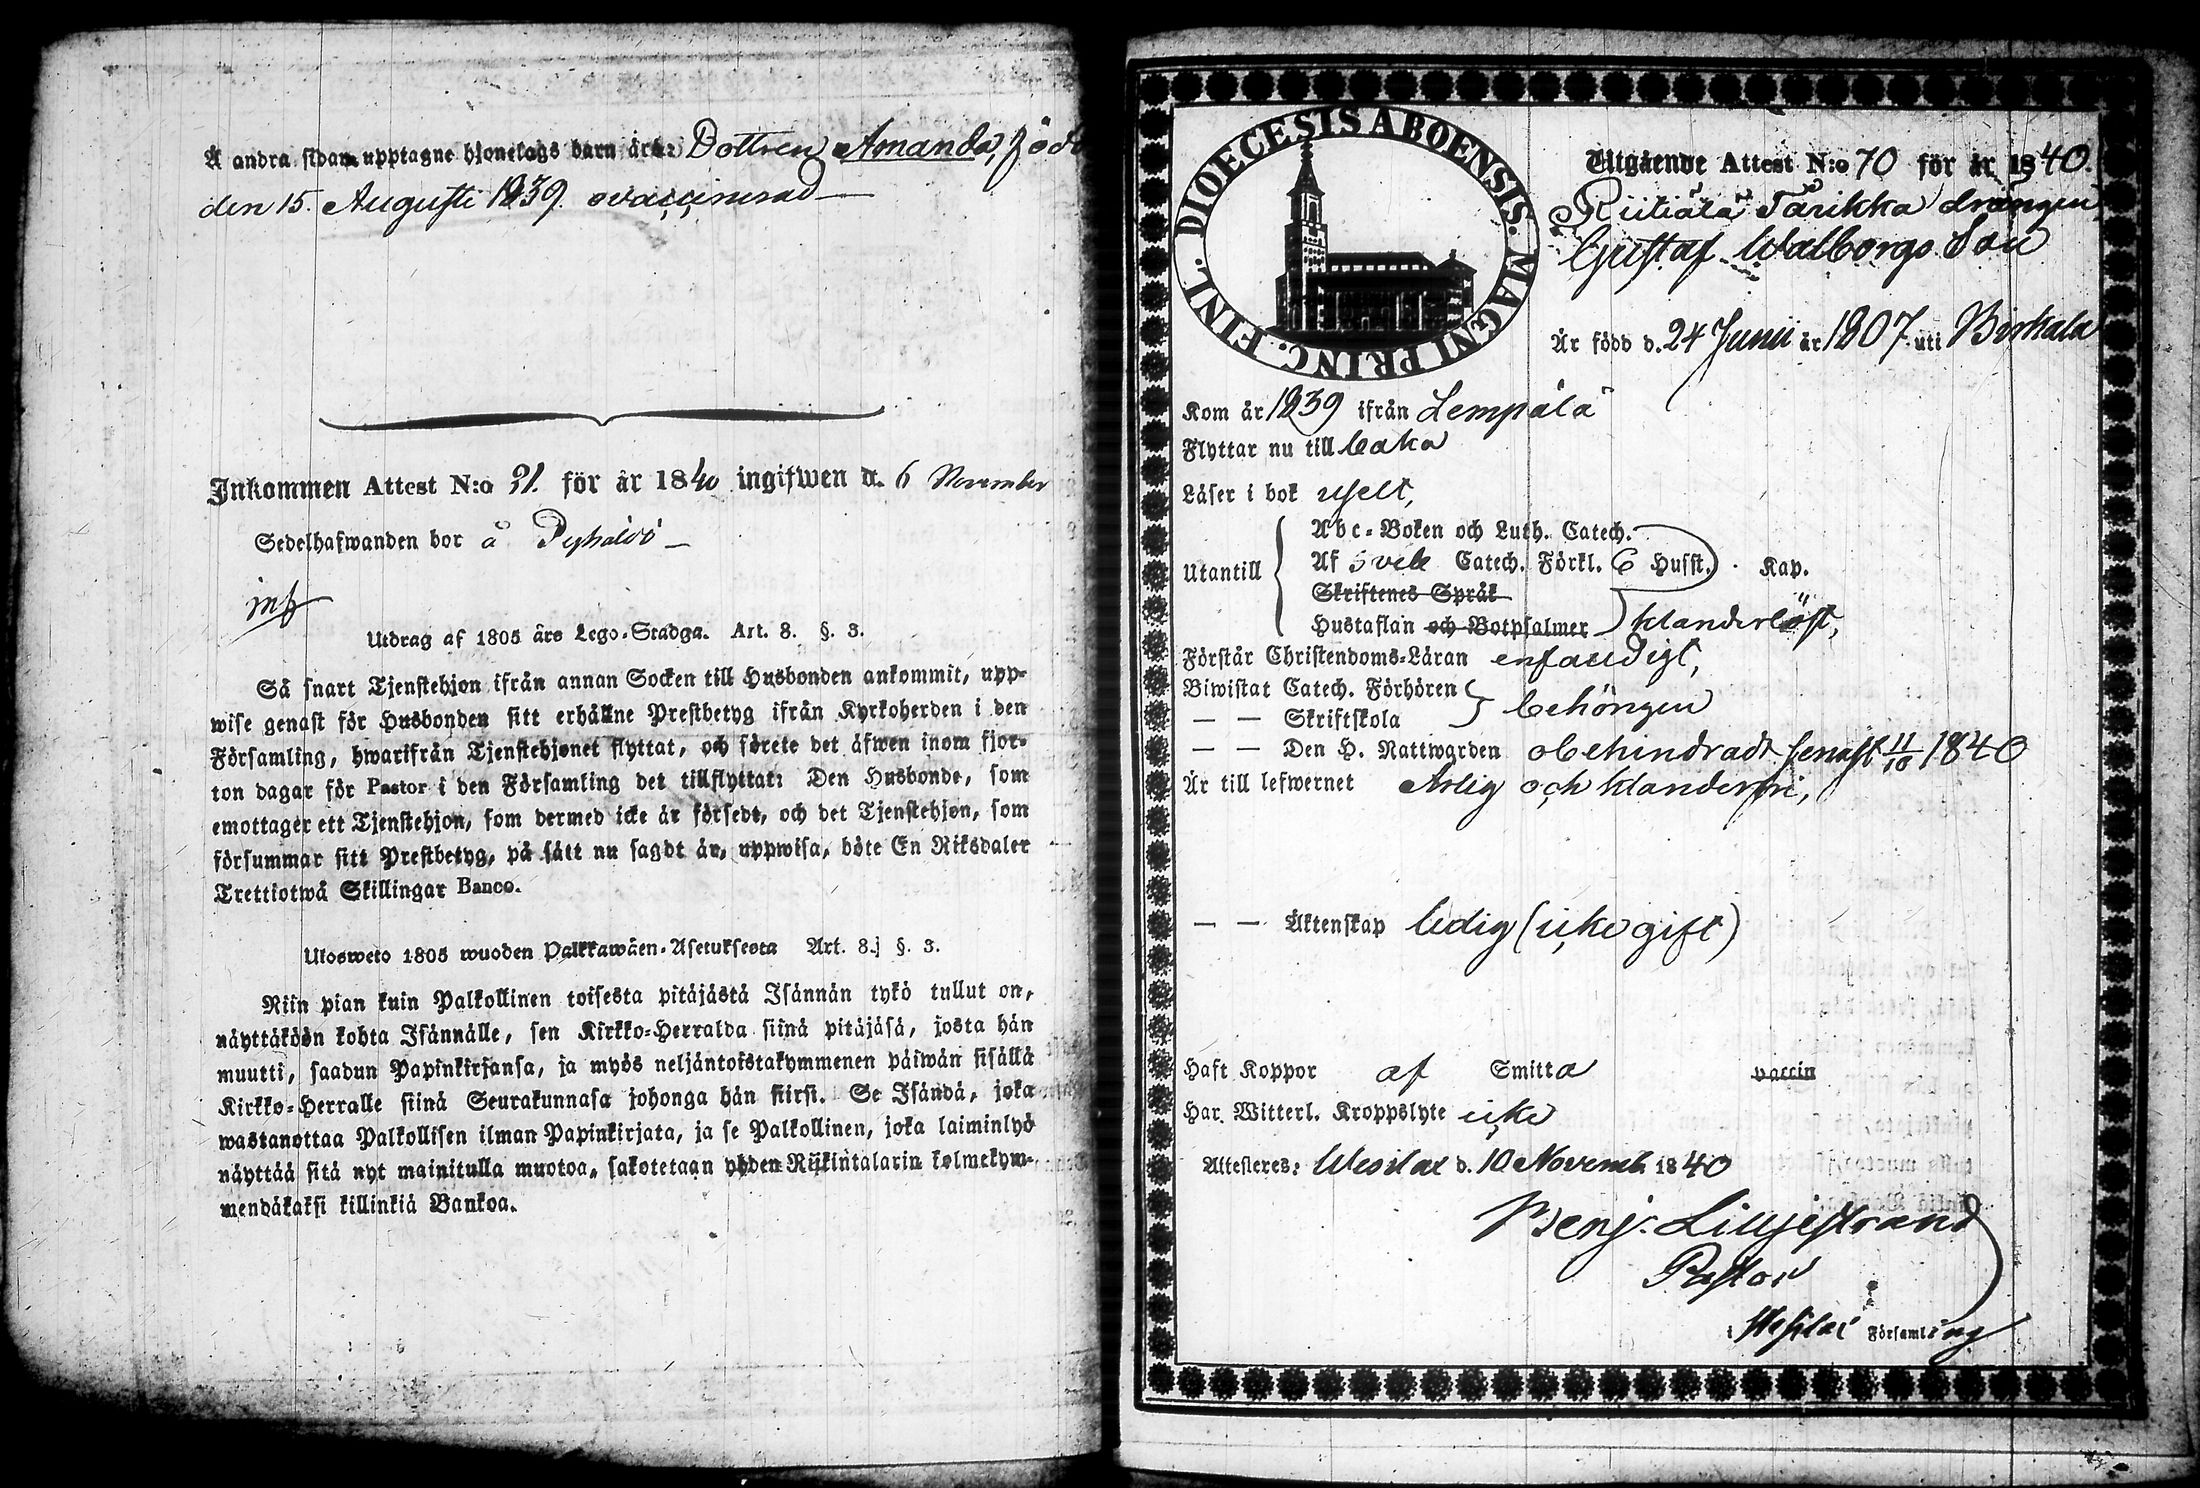 Å andra sidan upptagne hjonelags barn äro: Dottren Amanda, född
den 15. Augusti 1839. ovaccinerad
Inkommen Attest N:o 31. för år 1840 ingifwen d. 6 November
Sedelhafwanden bor å
Utdrag af 1805 års Lego-Stadga. Art. 8. §. 3.
Så snart Tjenstehjon ifrån annan Socken till Husbonden ankommit, upp-
wise genast för Husbonden sitt erhållne Prestbetyg ifrån Kyrkoherden i den
Församling, hwarifrån Tjenstehjonet flyttat, och förete det äfwen inom fjor-
ton dagar för Pastor i den Församling det tillflyttat: Den Husbonde, som
emottager ett Tjenstehjon, som dermed icke är försedt, och det Tjenstehjon, som
försummar sitt Prestbetyg, på sätt nu sagdt är, uppwisa, böte En Riksdaler
Trettiotwå Skillingar Banco.
Ulosweto 1805 wuoden Palkkawäen-Asetuksesta Art. 8. §. 3.
Niin pian kuin Palkollinen toisesta pitäjästä Isännän tykö tullut on,
näyttäköön kohta Isännälle, sen Kirkko-Herralda siinä pitäjäsä, josta hän
muutti, saadun Papinkirjansa, ja myös neljäntoistakymmenen päiwän sisällä
Kirkko-Herralle siinä Seurakunnasa johonga hän siirsi. Se Isändä, joka
wastanottaa Palkollisen ilman Papinkirjata, ja se Palkollinen, joka laiminlyö
näyttää sitä nyt mainitulla muotoa, sakotetaan yhden Riikintalarin kolmekym-
mendäkaksi killinkiä Bankoa.
DIOECESIS ABOENSIS. MAGNI PRINC. FINL.
Utgående Attest N:o 70 för år 1840.
Riitiälä Tärikka drängen
Gustaf Walborgs Son
Är född d. 24 Junii år 1807. uti Birkala
Kom år 1839 ifrån Lempälä
Flyttar nu till baka
Läser i bok uselt,
Utantill
Abc-Boken och Luth. Catech.
Af Sveb Catech. Förkl. 6 Husst. Kap.
Skriftenes Språk
Hustaflan och Botpsalmer klanderlöst,
Förstår Christendoms-Läran enfaldigt,
Biwistat Catech. Förhören
— — Skriftskola behörigen
— — Den H. Nattwarden obehindradt senast 11/10 1840
Är till lefwernet Ärlig och klanderfri,
— — Äktenskap ledig (icke gift)
Haft Koppor af Smitta vaccin
Har Witterl. Kroppslyte icke
Attesteres: Wesilax d. 10 Novemb. 1840
Benj. Liljestrand
Pastor
i Wesilax Församling